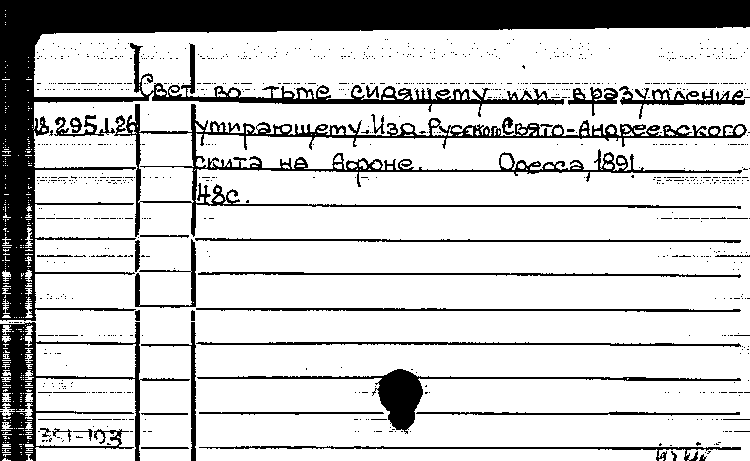 Свет во тьме сидящему или вразумление
18.295.1.26 умирающему. Изд. Русского Свято-Андреевского
скита на Афоне. Одесса, 1891.
48с.
351-103